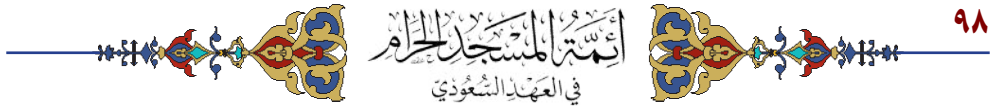 ٩٨
أَئِمَّةُ الْمَسْجِدِ الْحَرَامِ
فِي الْعَهْدِ السُّعُودِيِّ